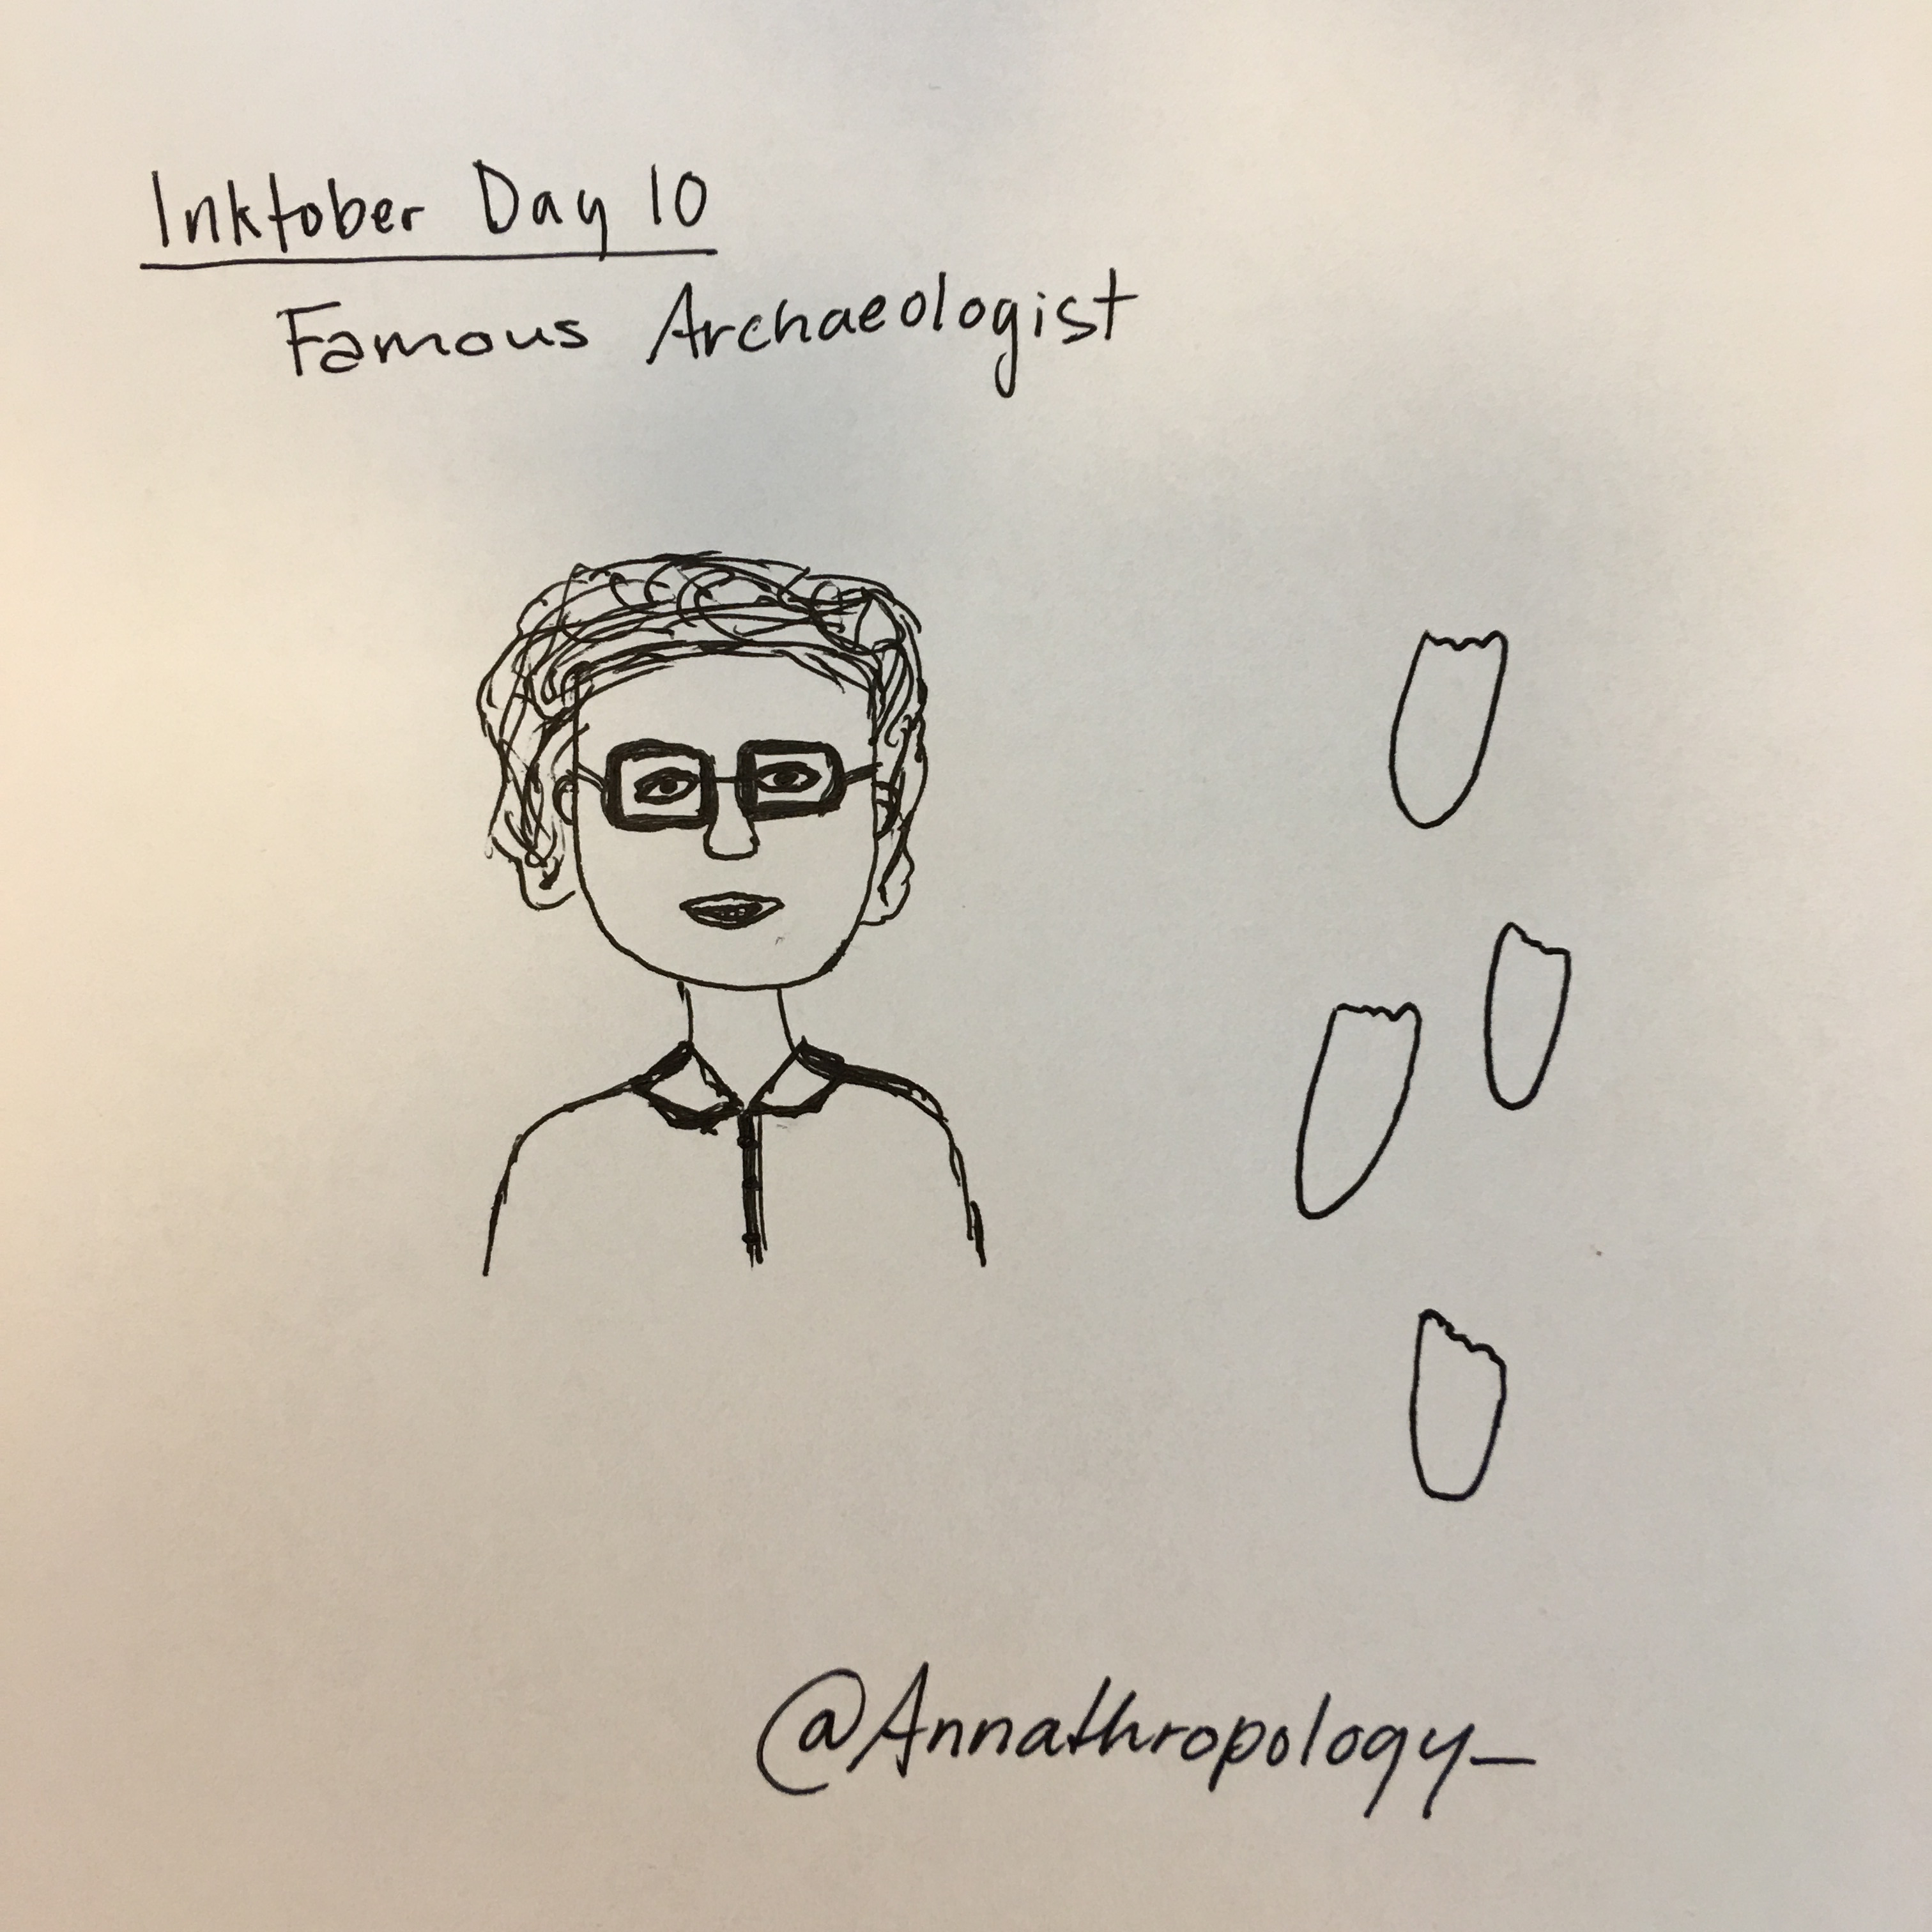 Inktober Day 10
Famous Archaeologist
@Annathropology_